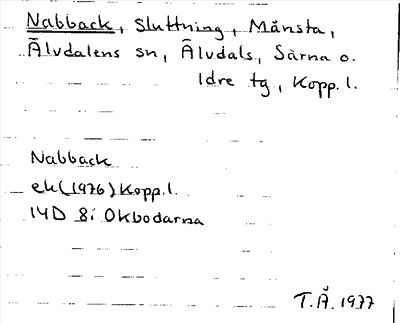 Nabback, sluttning, Månsta,
Älvdalens sn, Älvdals, Särna o.
Idre tg, Kopp. l.
Nabback
ek (1976) Kopp. l.
14D 8i Okbodarna
T.Å. 1977